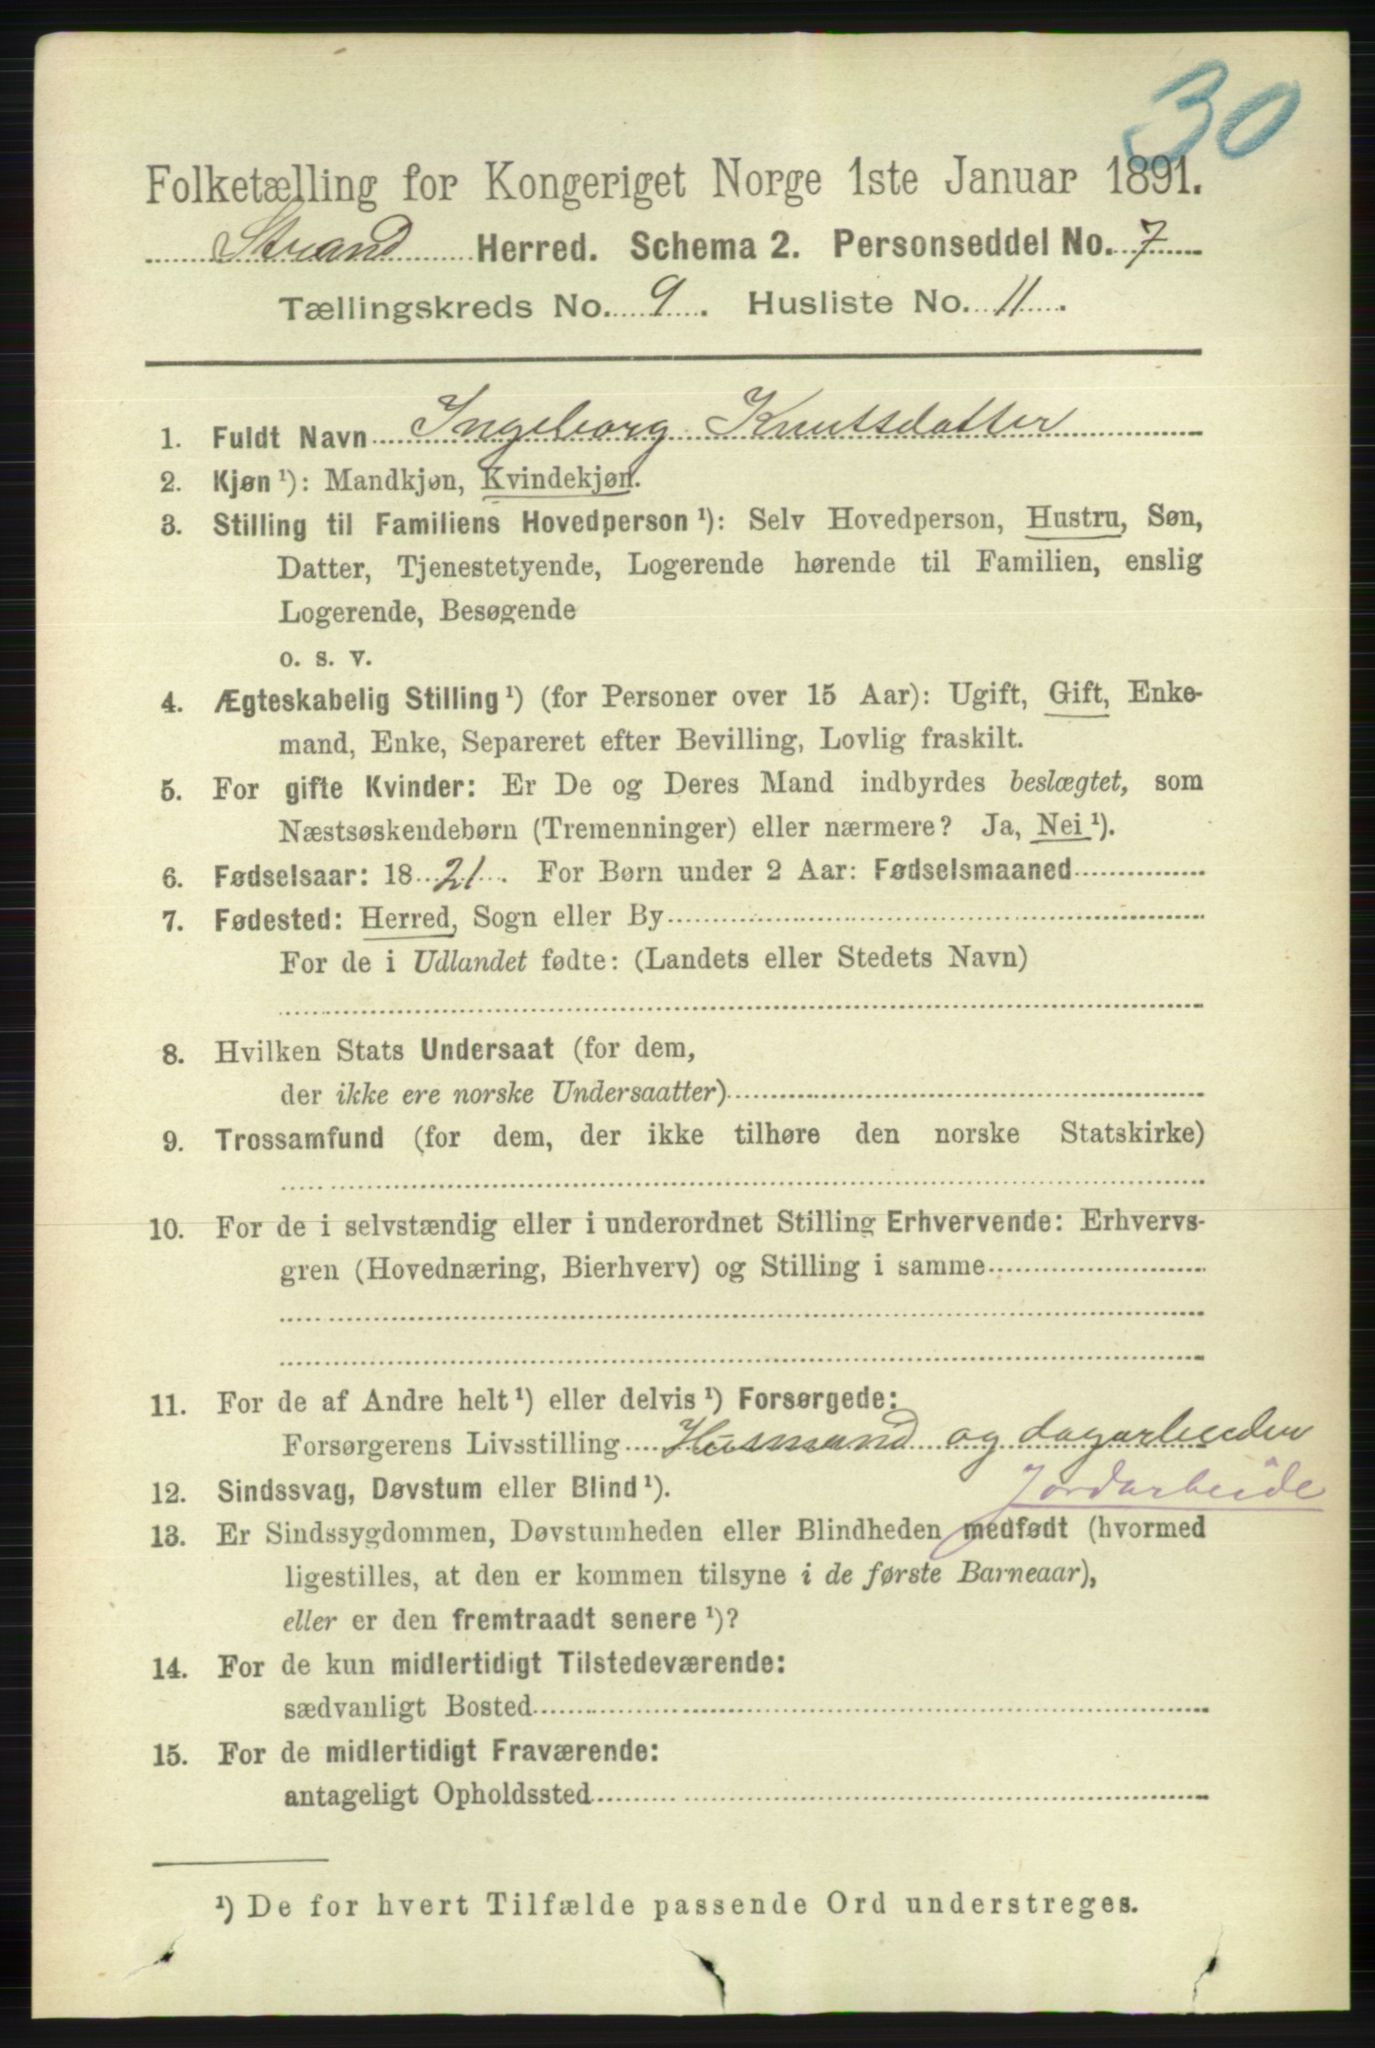 30
Folketælling for Kongeriget Norge 1ste Januar 1891.
Strand Herred. Schema 2. Personseddel No. 7
Tællingskreds No. 9. Husliste No. 11.
1. Fuldt Navn Ingeborg Knutsdatter
2. Kjøn ¹): Mandkjøn, Kvindekjøn.
3. Stilling til Familiens Hovedperson ¹): Selv Hovedperson, Hustru, Søn,
Datter, Tjenestetyende, Logerende hørende til Familien, enslig
Logerende, Besøgende
o. s. v.
4. Ægteskabelig Stilling ¹) (for Personer over 15 Aar): Ugift, Gift, Enke-
mand, Enke, Separeret efter Bevilling, Lovlig fraskilt.
5. For gifte Kvinder: Er De og Deres Mand indbyrdes beslægtet, som
Næstsøskendebørn (Tremenninger) eller nærmere? Ja, Nei ¹).
6. Fødselsaar: 1821. For Børn under 2 Aar: Fødselsmaaned
7. Fødested: Herred, Sogn eller By
For de i Udlandet fødte: (Landets eller Stedets Navn)
8. Hvilken Stats Undersaat (for dem,
der ikke ere norske Undersaatter)
9. Trossamfund (for dem, der ikke tilhøre den norske Statskirke)
10. For de i selvstændig eller i underordnet Stilling Erhvervende: Erhvervs-
gren (Hovednæring, Bierhverv) og Stilling i samme
11. For de af Andre helt ¹) eller delvis ¹) Forsørgede:
Forsørgerens Livsstilling Husmand og dagarbeider
Jordarbeide
12. Sindssvag, Døvstum eller Blind ¹).
13. Er Sindssygdommen, Døvstumheden eller Blindheden medfødt (hvormed
ligestilles, at den er kommen tilsyne i de første Barneaar),
eller er den fremtraadt senere ¹)?
14. For de kun midlertidigt Tilstedeværende:
sædvanligt Bosted
15. For de midlertidigt Fraværende:
antageligt Opholdssted
¹) De for hvert Tilfælde passende Ord understreges.